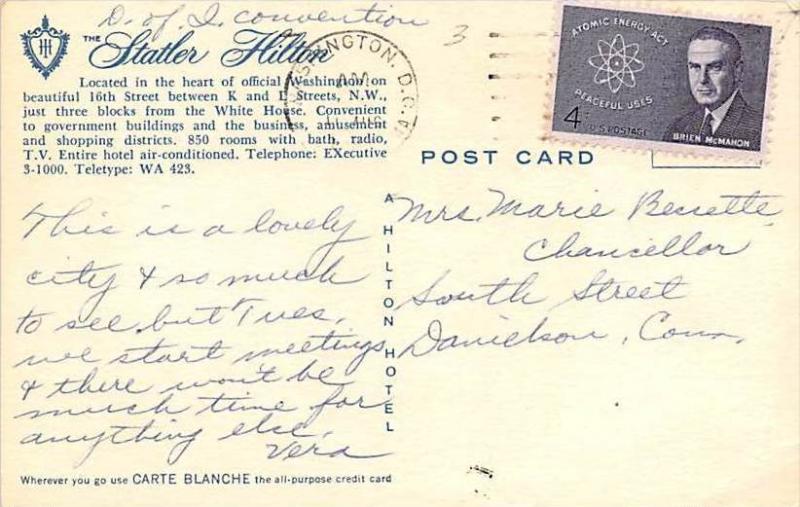 D. of I. convention
3
THE Statler Hilton
Located in the heart of official Washington on
beautiful 16th Street between K and L Streets, N.W.,
just three blocks from the White House. Convenient
to government buildings and the business, amusement
and shopping districts. 850 rooms with bath, radio,
T.V. Entire hotel air-conditioned. Telephone: EXecutive
3-1000. Teletype: WA 423.
WASHINGTON, D.C.
ATOMIC ENERGY ACT
PEACEFUL USES
4¢
U.S. POSTAGE
BRIEN McMAHON
POST CARD
This is a lovely
city & so much
to see but Tues.
we start meetings
& there won't be
much time for
anything else.
Vera
A HILTON HOTEL
Mrs. Marie Bessette
Chancellor
South Street
Danielson, Conn.
Wherever you go use CARTE BLANCHE the all-purpose credit card